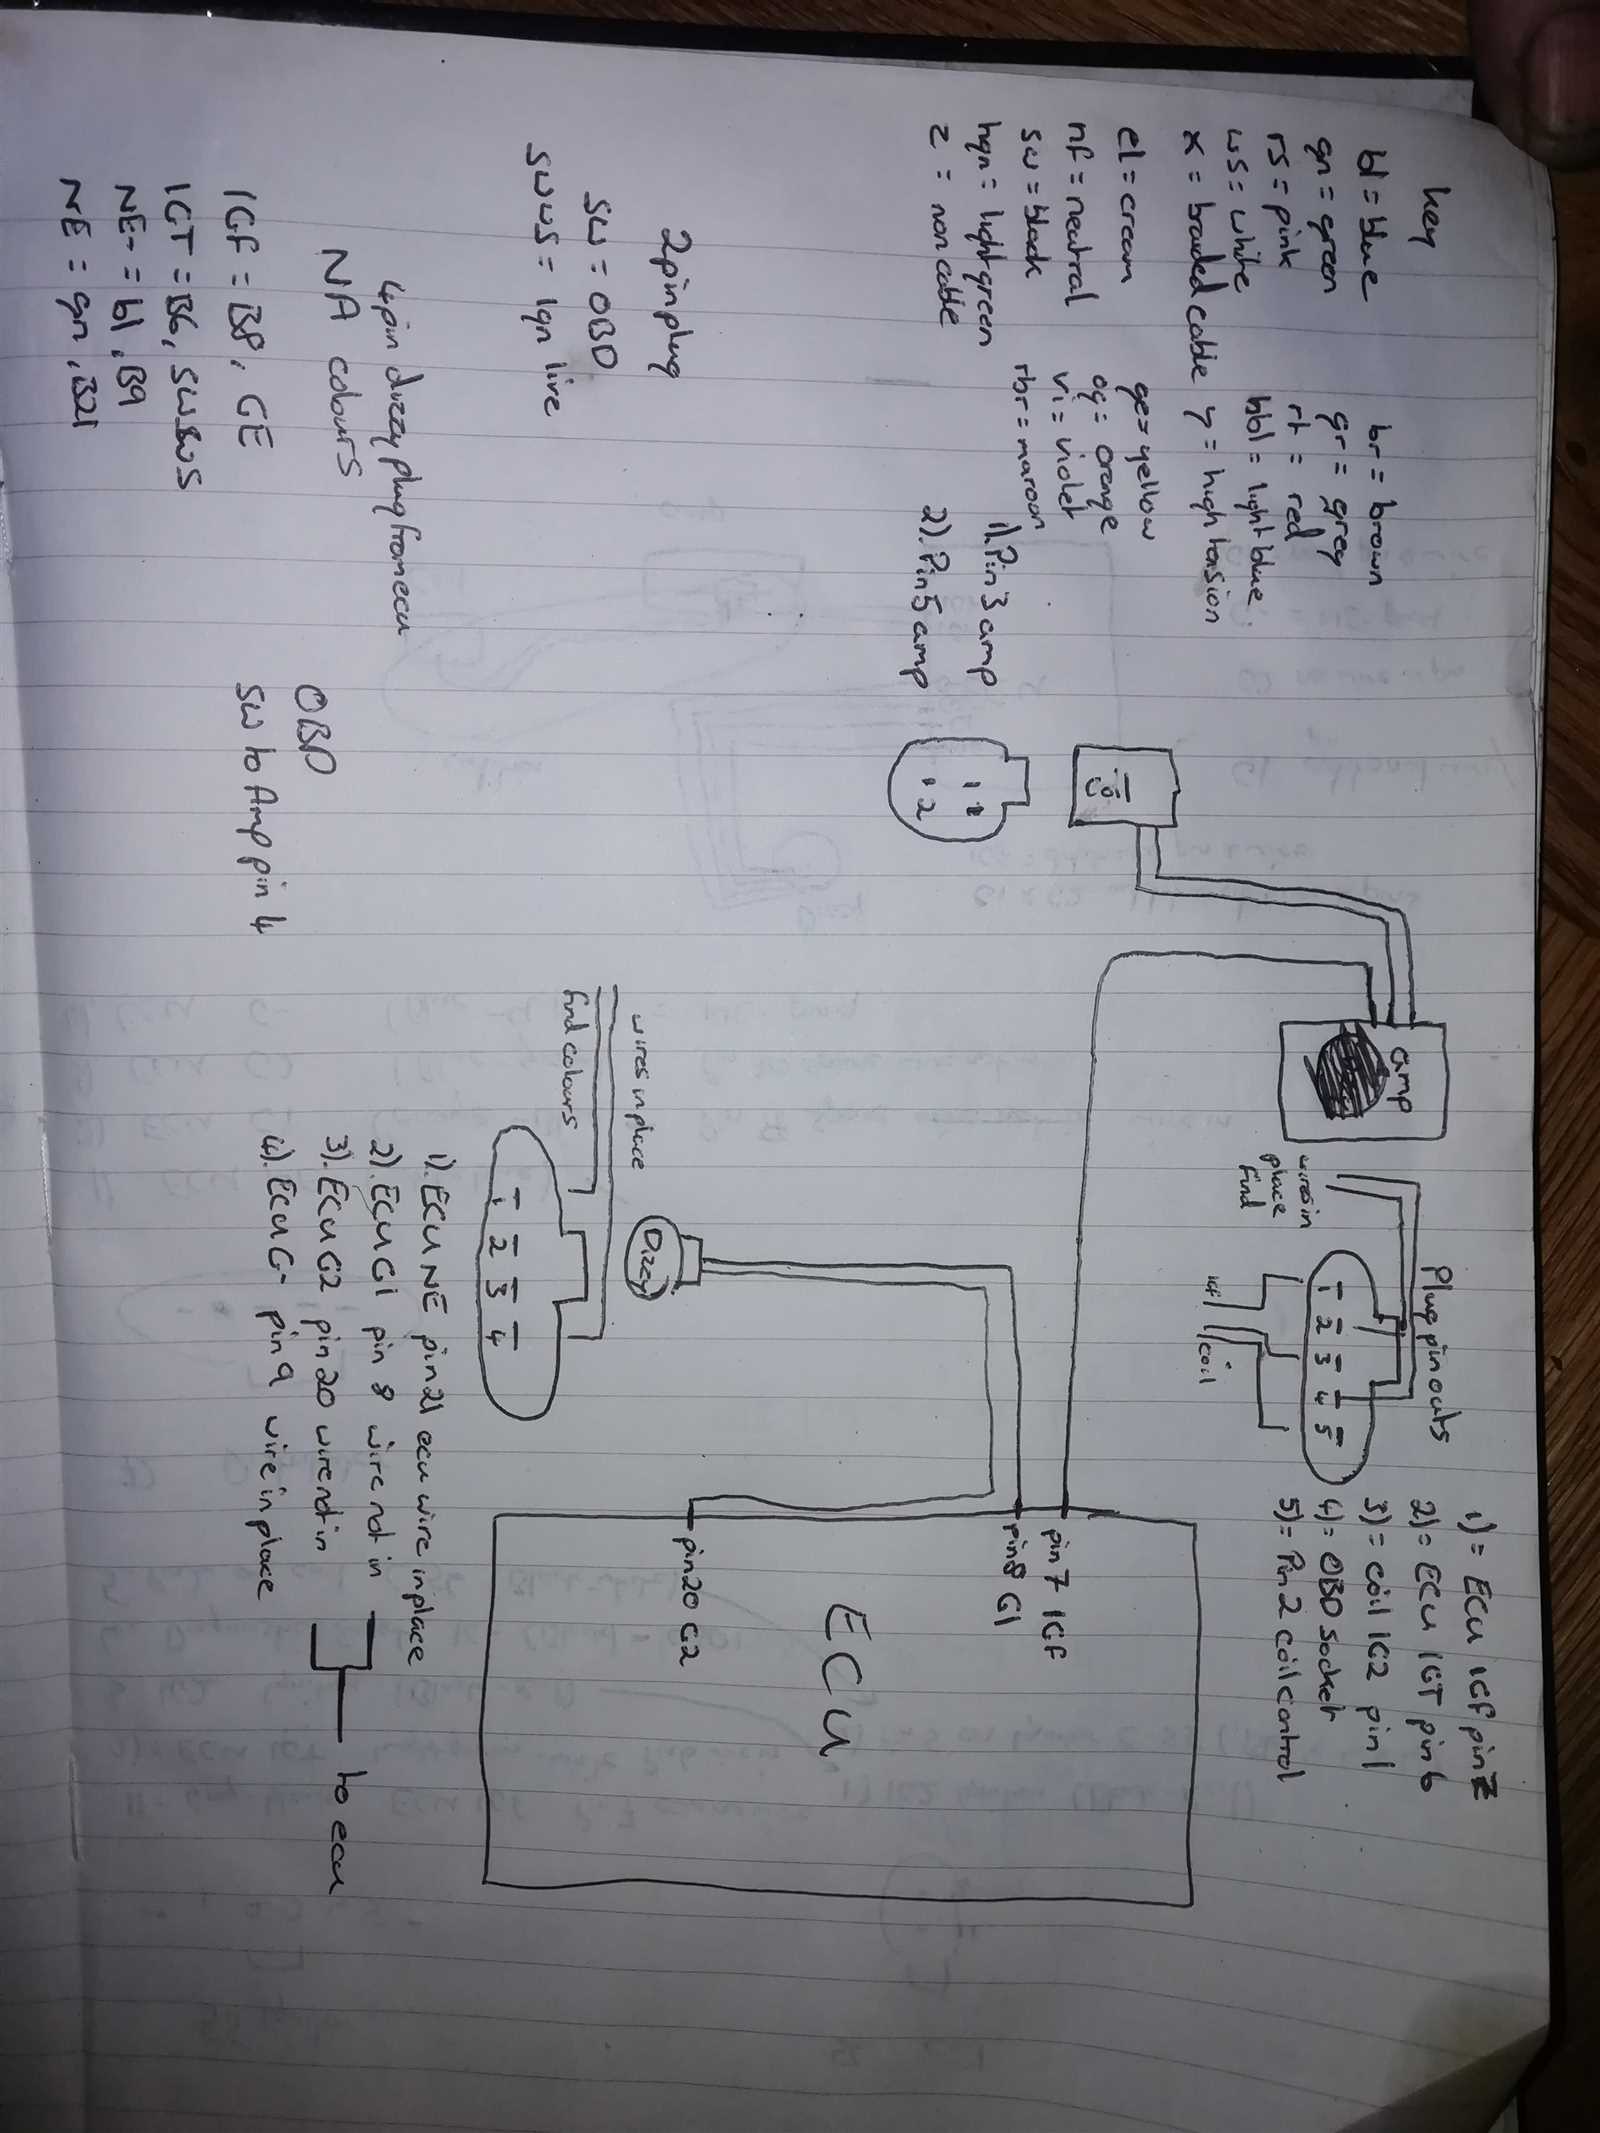 key
bl = blue
gn = green
rs = pink
ws = white
x = braided cable
el = cream
nf = neutral
sw = black
hgn = light green
z = non cable
br = brown
gr = grey
rt = red
hbl = light blue
y = high tension
ge = yellow
og = orange
vi = violet
rbr = maroon
1). Pin 3 amp
2). Pin 5 amp
coil
1
2
amp
wires in
place
find
Plug pin outs
1 2 3 4 5
IGF
coil
1) = ECU IGF pin 7
2) = ECU IGT pin 6
3) = coil IG2 pin 1
4) = OBD Socket
5) = Pin 2 coil control
2 pin plug
sw = OBD
swws = Ign live
4pin dizzy plug from ecu
NA colours
IGF = B8, GE
IGT = B6, swsws
NE- = bl, B9
NE = gn, B21
OBD
SW to Amp pin 4
wires in place
find colours
Dizzy
1 2 3 4
1). ECU NE pin 21 ecu wire in place
2). ECU G1 pin 8 wire not in
3). ECU G2 pin 20 wire not in
4). ECU G- pin 9 wire in place
to ecu
pin 7 IGF
pin 8 G1
ECU
pin 20 G2